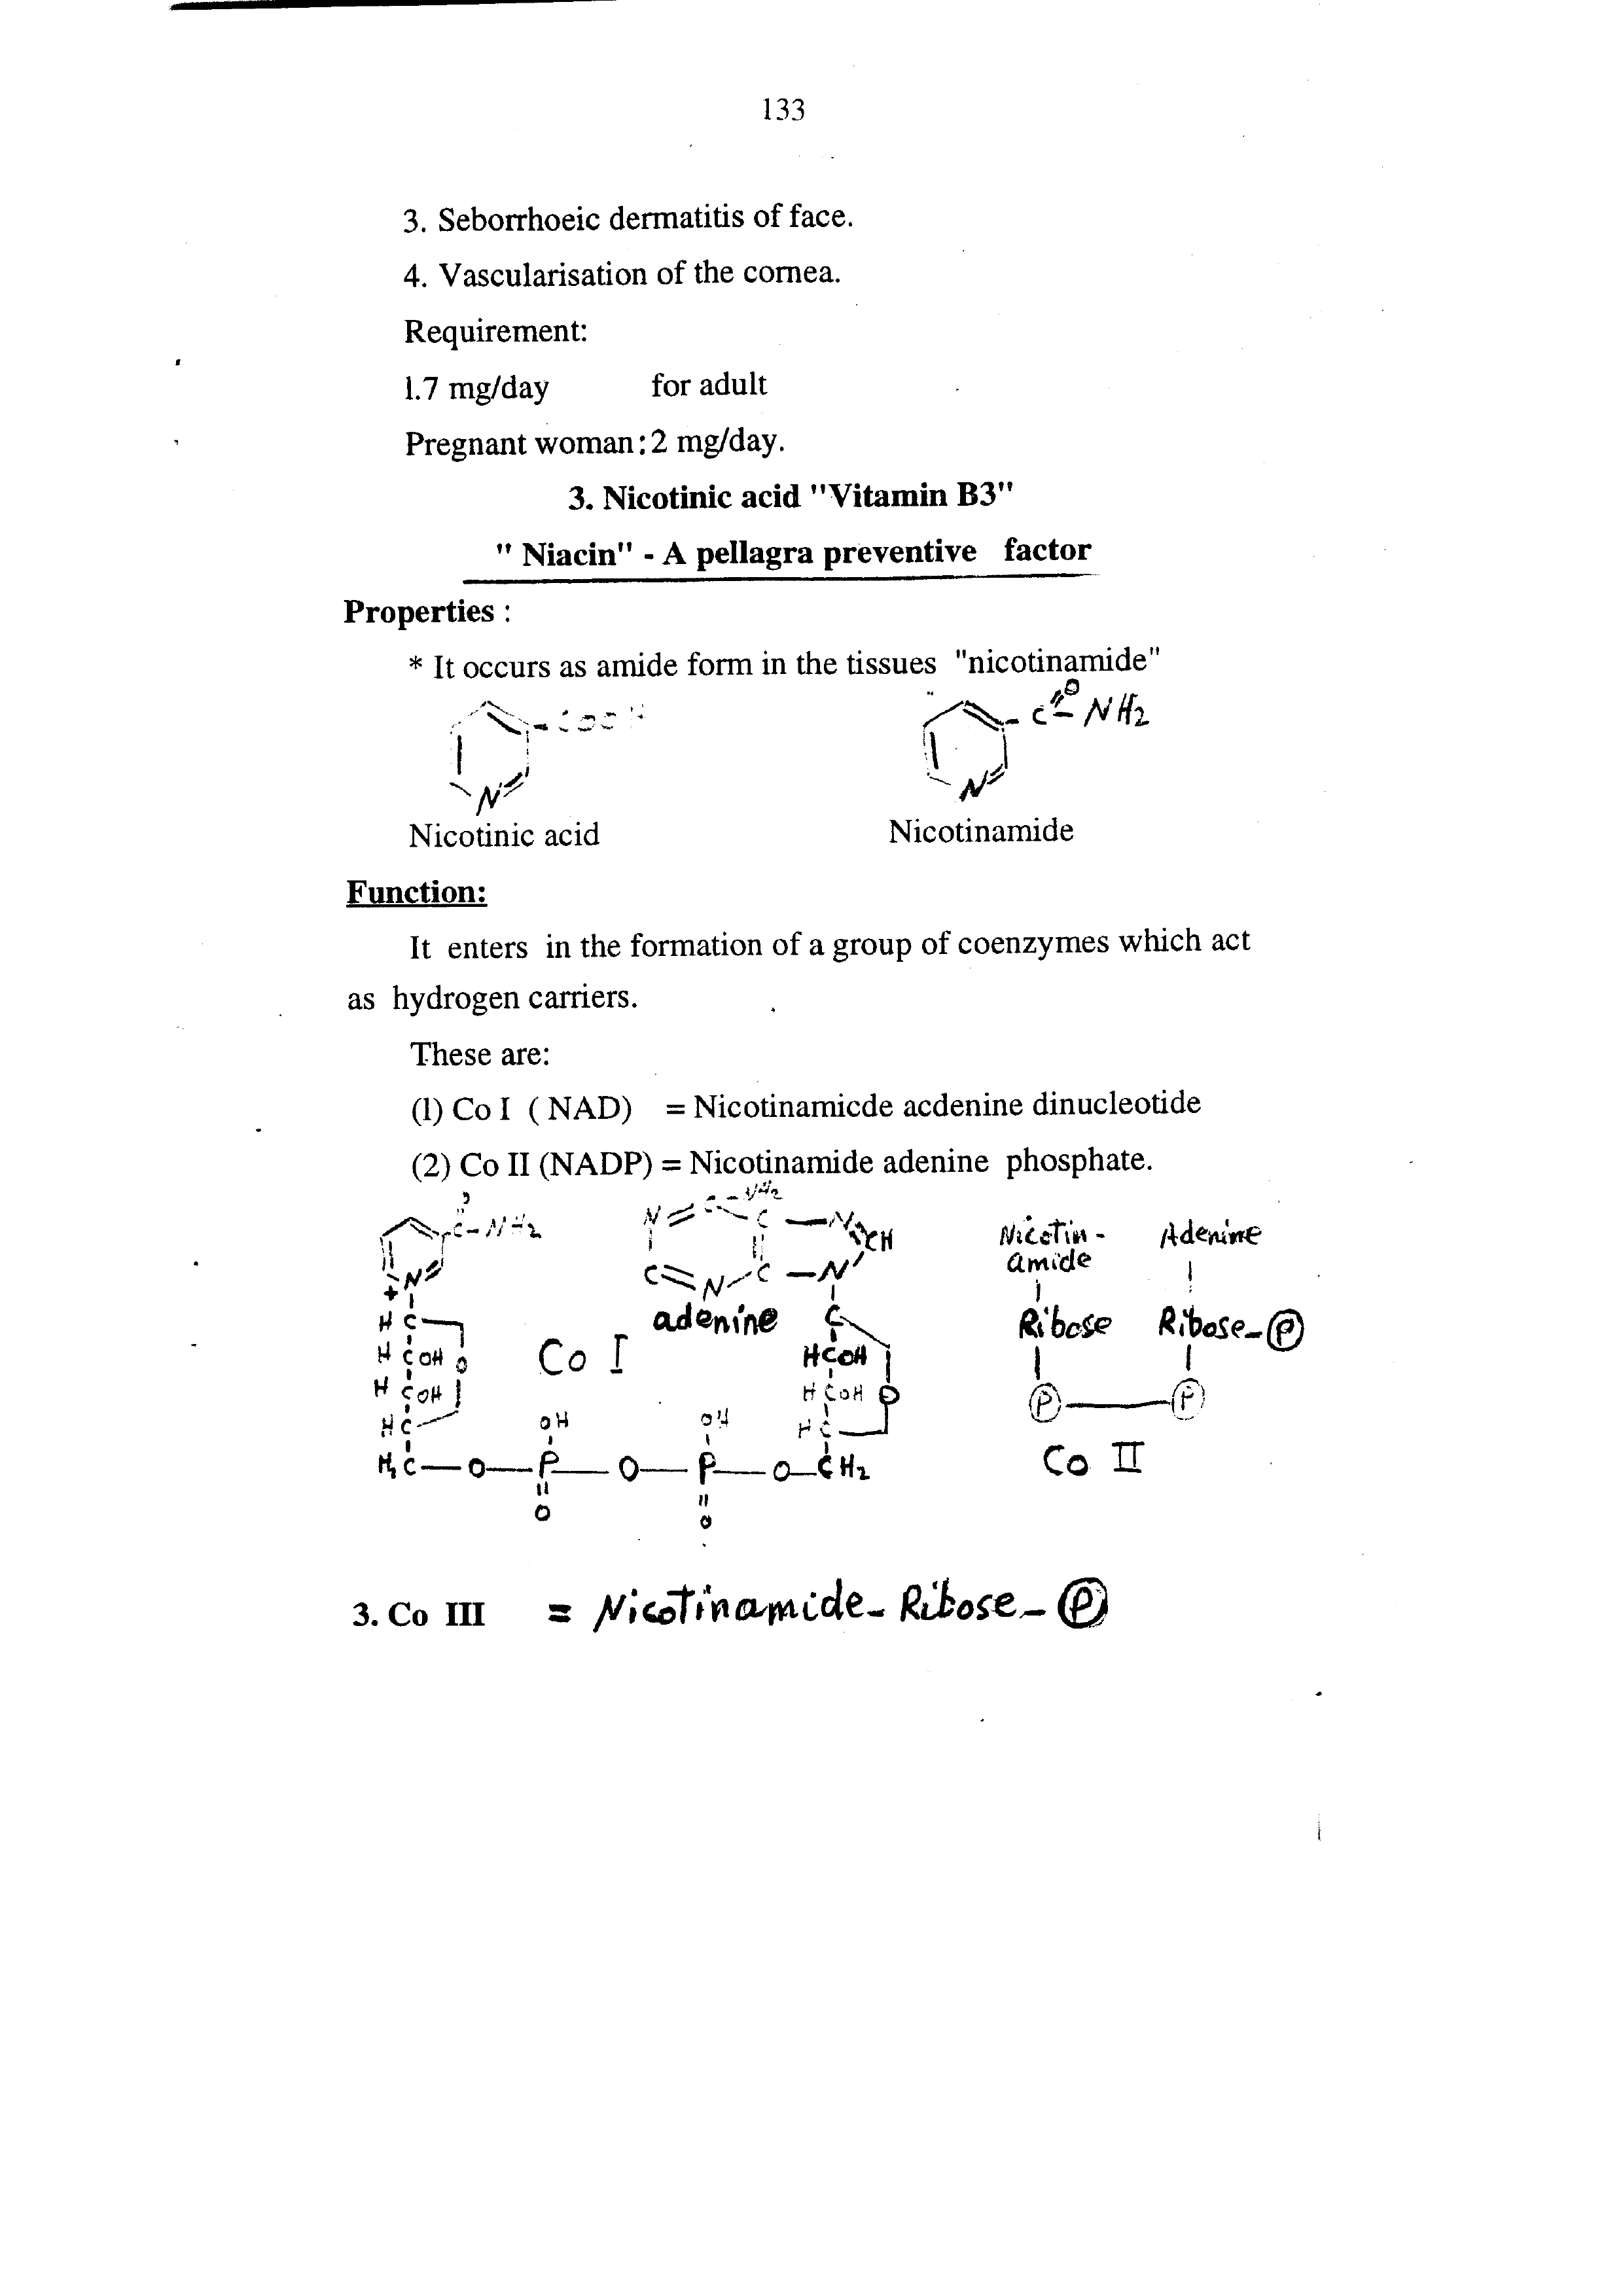 133
3. Seborrhoeic dermatitis of face.
4. Vascularisation of the cornea.
Requirement:
1.7 mg/day for adult
Pregnant woman: 2 mg/day.
3. Nicotinic acid "Vitamin B3"
" Niacin" - A pellagra preventive factor
Properties :
* It occurs as amide form in the tissues "nicotinamide"
COOH
N
O
C - NH2
N
Nicotinic acid Nicotinamide
Function:
It enters in the formation of a group of coenzymes which act
as hydrogen carriers.
These are:
(1) Co I ( NAD) = Nicotinamicde acdenine dinucleotide
(2) Co II (NADP) = Nicotinamide adenine phosphate.
C - NH2
N
+
HC
HCOH O
HCOH
HC
H2C — O — P — O — P — O — CH2
OH OH
O O
Co I
C - NH2
N C — N
CH
C = N - C — N
adenine
C
HCOH
HCOH O
HC
Nicotin - Adenine
amide
Ribose Ribose - P
P — P
Co II
3. Co III = Nicotinamide - Ribose - P